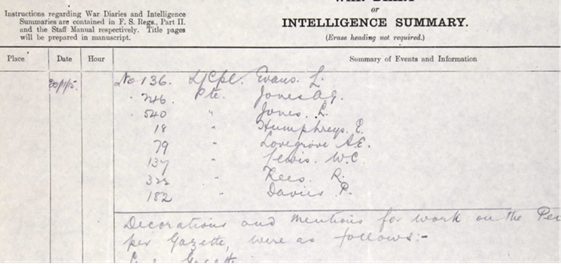 Instructions regarding War Diaries and Intelligence
Summaries are contained in F. S. Regs., Part II.
and the Staff Manual respectively. Title pages
will be prepared in manuscript.
or
INTELLIGENCE SUMMARY.
(Erase heading not required.)
Place Date Hour Summary of Events and Information
No 136. L/Cpl. Evans. L.
Pte. Jones A.G.
540 " Jones. L.
18 " Humphreys. E.
79 " Lovegrove A.E.
137 " Lewis. W.C.
" Rees. R.
182 " Davies P.
Decorations and mentions for work on the
per Gazette, were as follows:-